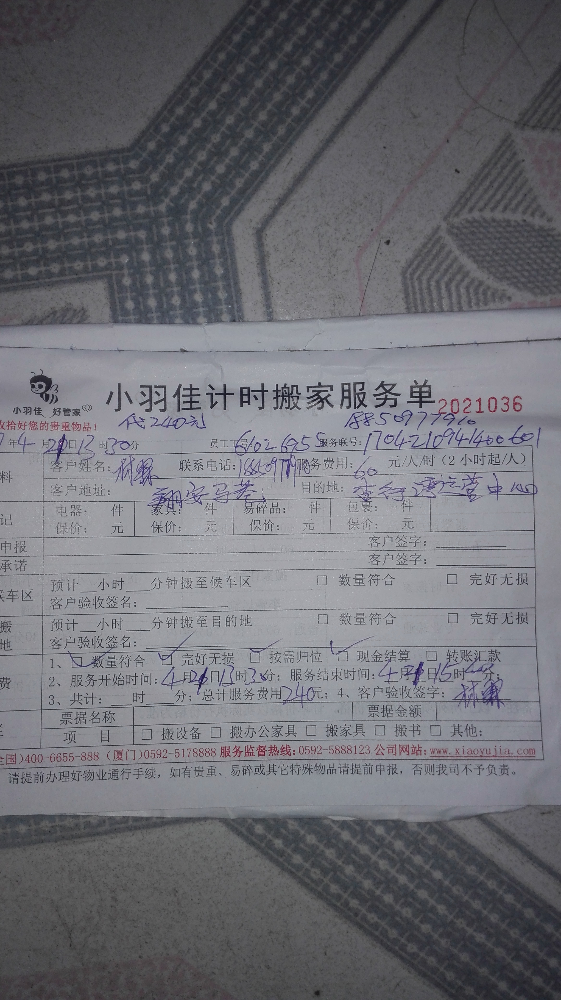 小羽佳 好管家
小羽佳计时搬家服务单
2021036
收拾好您的贵重物品!
代240元
18850977910
年4月21日13时30分 员工 服务联号: 1704210941400601
客户姓名: 林 联系电话: 服务费用: 60 元/人/时 (2小时起/人)
客户地址: 翔安马巷 目的地:
电器: 件 家具: 件 易碎品: 件 包裹: 件
保价: 元 保价: 元 保价: 元 保价: 元
申报 客户签字:
承诺 客户签字:
候车区 预计 小时 分钟搬至候车区 □ 数量符合 □ 完好无损
客户验收签名:
搬 预计 小时 分钟搬至目的地 □ 数量符合 □ 完好无损
地 客户验收签名:
1、 数量符合 完好无损 □ 按需归位 □ 现金结算 □ 转账汇款
费 2、服务开始时间: 4月21日13时30分; 服务结束时间: 4月 日15时 分;
3、共计: 时 分; 总计服务费用240元; 4、客户验收签字: 林
票据名称 票据金额
项 目 □ 搬设备 □ 搬办公家具 □ 搬家具 □ 搬书 □ 其他:
国)400-6655-888 (厦门)0592-5178888 服务监督热线:0592-5888123 公司网站:www.xiaoyujia.com
请提前办理好物业通行手续, 如有贵重、易碎或其它特殊物品请提前申报, 否则我司不予负责。